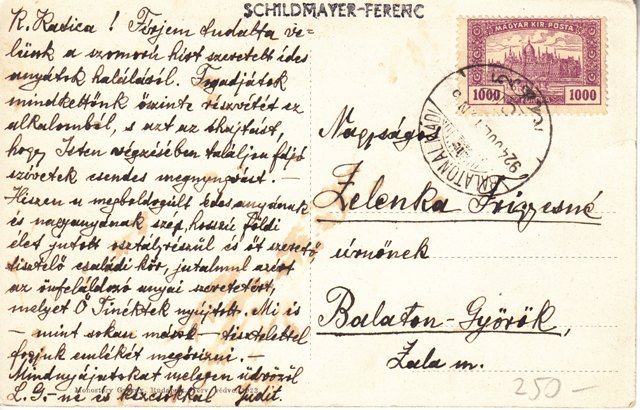 SCHILDMAYER-FERENC
K. Katica! Férjem tudatta ve-
lünk a szomorú hírt szeretett édes
anyátok haláláról. Fogadjátok
mindkettőnk őszinte részvétét ez
alkalomból, s azt az óhajtást,
hogy Isten végzésében találjon fájó
szívetek csendes megnyugvást. -
Hiszen a megboldogúlt édes anyának
és nagyanyának szép, hosszú földi
élet jutott osztályrészül és őt szerető,
tisztelő családi kör, jutalmul azért
az önfeláldozó anyai szeretetért,
melyet Ő Tinéktek nyújtott. Mi is
- mint sokan mások - tisztelettel
fogjuk emlékét megőrizni. -
Mindnyájatokat melegen üdvözöl
L. G.-né és kicsikkel Judit.
MAGYAR KIR. POSTA
1000 1000
BALATONALMÁDI
924
Nagyságos
Zelenka Frigyesné
úrnőnek
Balaton-Györök,
Zala m.
250-